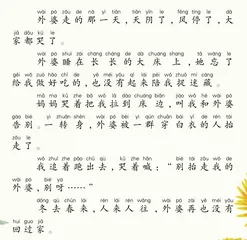 wài pó zǒu de nà yì tiān tiān yīn le fēng tíng le dà
外婆走的那一天，天阴了，风停了，大
jiā dōu kū le
家都哭了。
wài pó shuì zài cháng cháng de dà chuáng shàng tā wàng le
外婆睡在长长的大床上，她忘了
gěi wǒ zuò hǎo chī de yě méi yǒu qǐ lái péi wǒ zhuō mí cáng
给我做好吃的，也没有起来陪我捉迷藏。
mā ma kū zhe bǎ wǒ lā dào chuáng biān jiào wǒ hé wài pó
妈妈哭着把我拉到床边，叫我和外婆
gào bié yì zhuǎn shēn wài pó bèi yì qún chuān bái yī de rén tái
告别。一转身，外婆被一群穿白衣的人抬
zǒu le
走了。
wǒ zhuī zhe pǎo chū qù kū zhe hǎn bié tái zǒu wǒ de
我追着跑出去，哭着喊：“别抬走我的
wài pó bié ya
外婆，别呀……”
dōng qù chūn lái rén lái rén wǎng wài pó zài yě méi yǒu
冬去春来，人来人往，外婆再也没有
huí guò jiā
回过家。